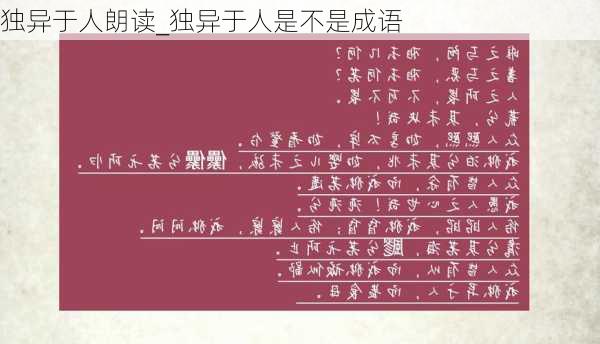 独异于人朗读_独异于人是不是成语
唯之与阿，相去几何？
善之与恶，相去何若？
人之所畏，不可不畏。
荒兮，其未央哉！
众人熙熙，如享太牢，如春登台。
我独泊兮其未兆，如婴儿之未孩，儽儽兮若无所归。
众人皆有余，而我独若遗。
我愚人之心也哉！沌沌兮。
俗人昭昭，我独昏昏；俗人察察，我独闷闷。
澹兮其若海，飂兮若无所止。
众人皆有以，而我独顽似鄙。
我独异于人，而贵食母。